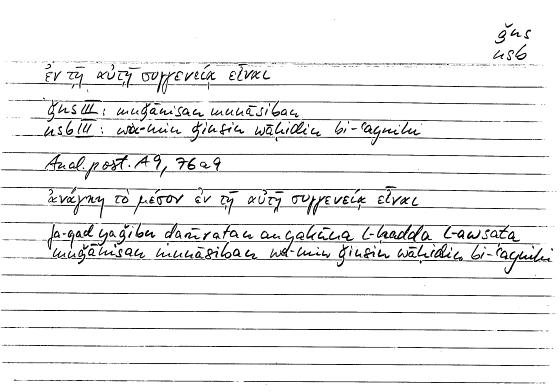 ǧns
nsb
ἐν τῇ αὐτῇ συγγενείᾳ εἶναι
ǧns III: muǧānisan munāsiban
nsb III: wa-min ǧinsin wāḥidin bi-ʿaynihi
Anal. post. A9, 76a9
ἀνάγκη τὸ μέσον ἐν τῇ αὐτῇ συγγενείᾳ εἶναι
fa-qad yaǧibu ḍarūratan an yakūna l-ḥadda l-awsaṭa
muǧānisan munāsiban wa-min ǧinsin wāḥidin bi-ʿaynihi